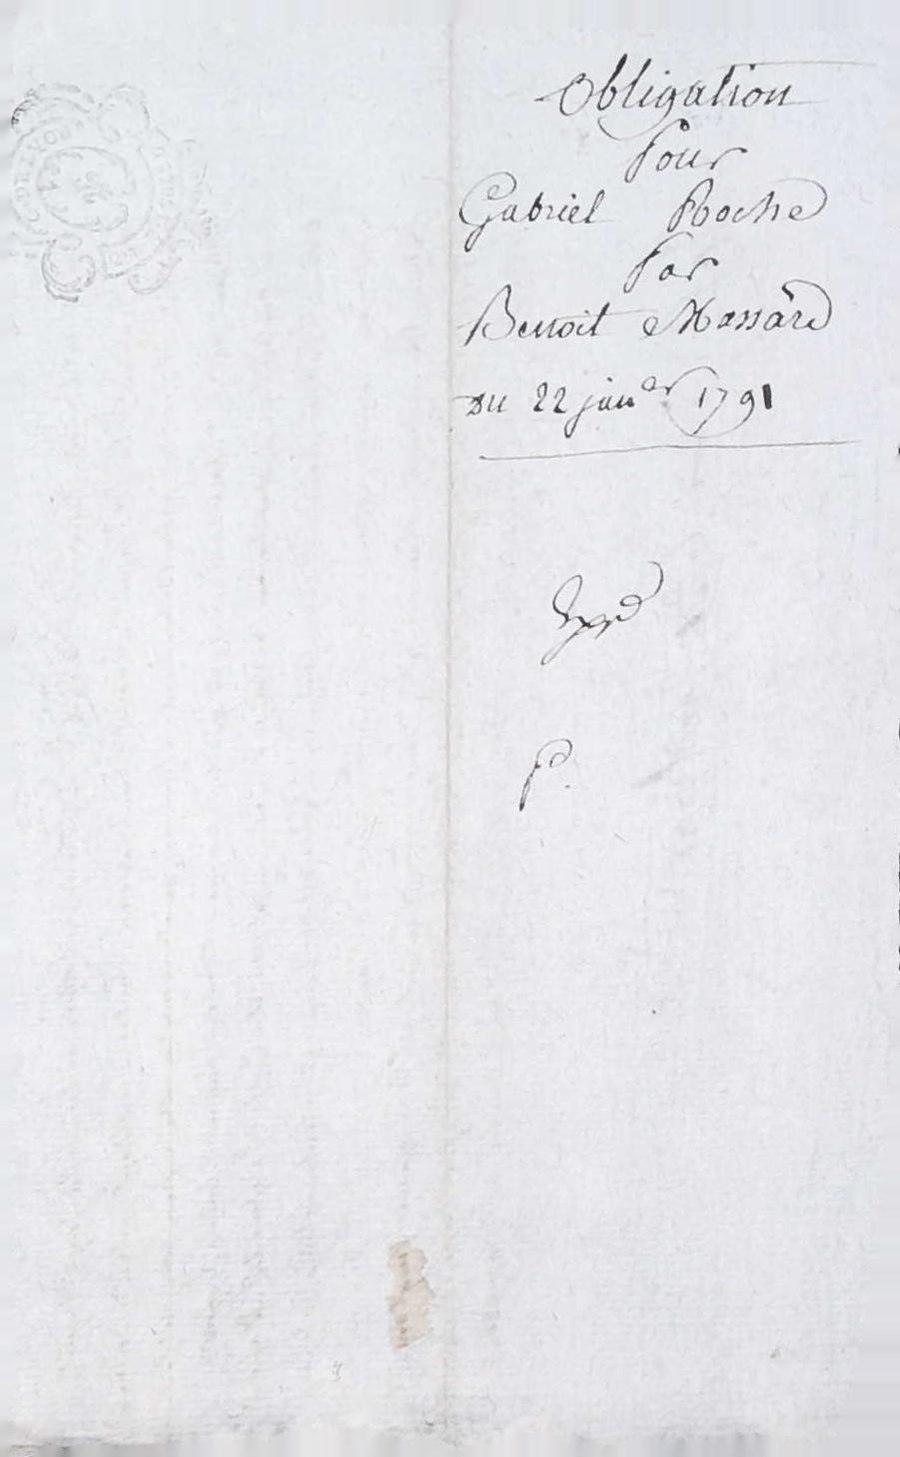 Obligation
Pour
Gabriel Roche
Par
Benoit Massard
Du 22 janer 1791